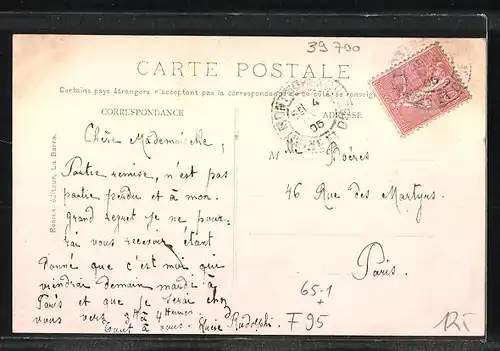 39700
CARTE POSTALE
Certains pays étrangers n'acceptant pas la correspondance de ce côté, se renseigner
CORRESPONDANCE
ADRESSE
Chère Mademoiselle,
Partie remise, n'est pas
partie perdu et à mon
grand regret je ne pour-
rai vous recevoir, étant
donné que c'est moi qui
viendrai demain mardi à
Paris et que je serai chez
vous vers 3h à 4 heures
Tout à vous. Rudolphi.
M
Boëres
46 Rue des Martyrs.
Paris.
65-1
F95
éditeur, La Barre.